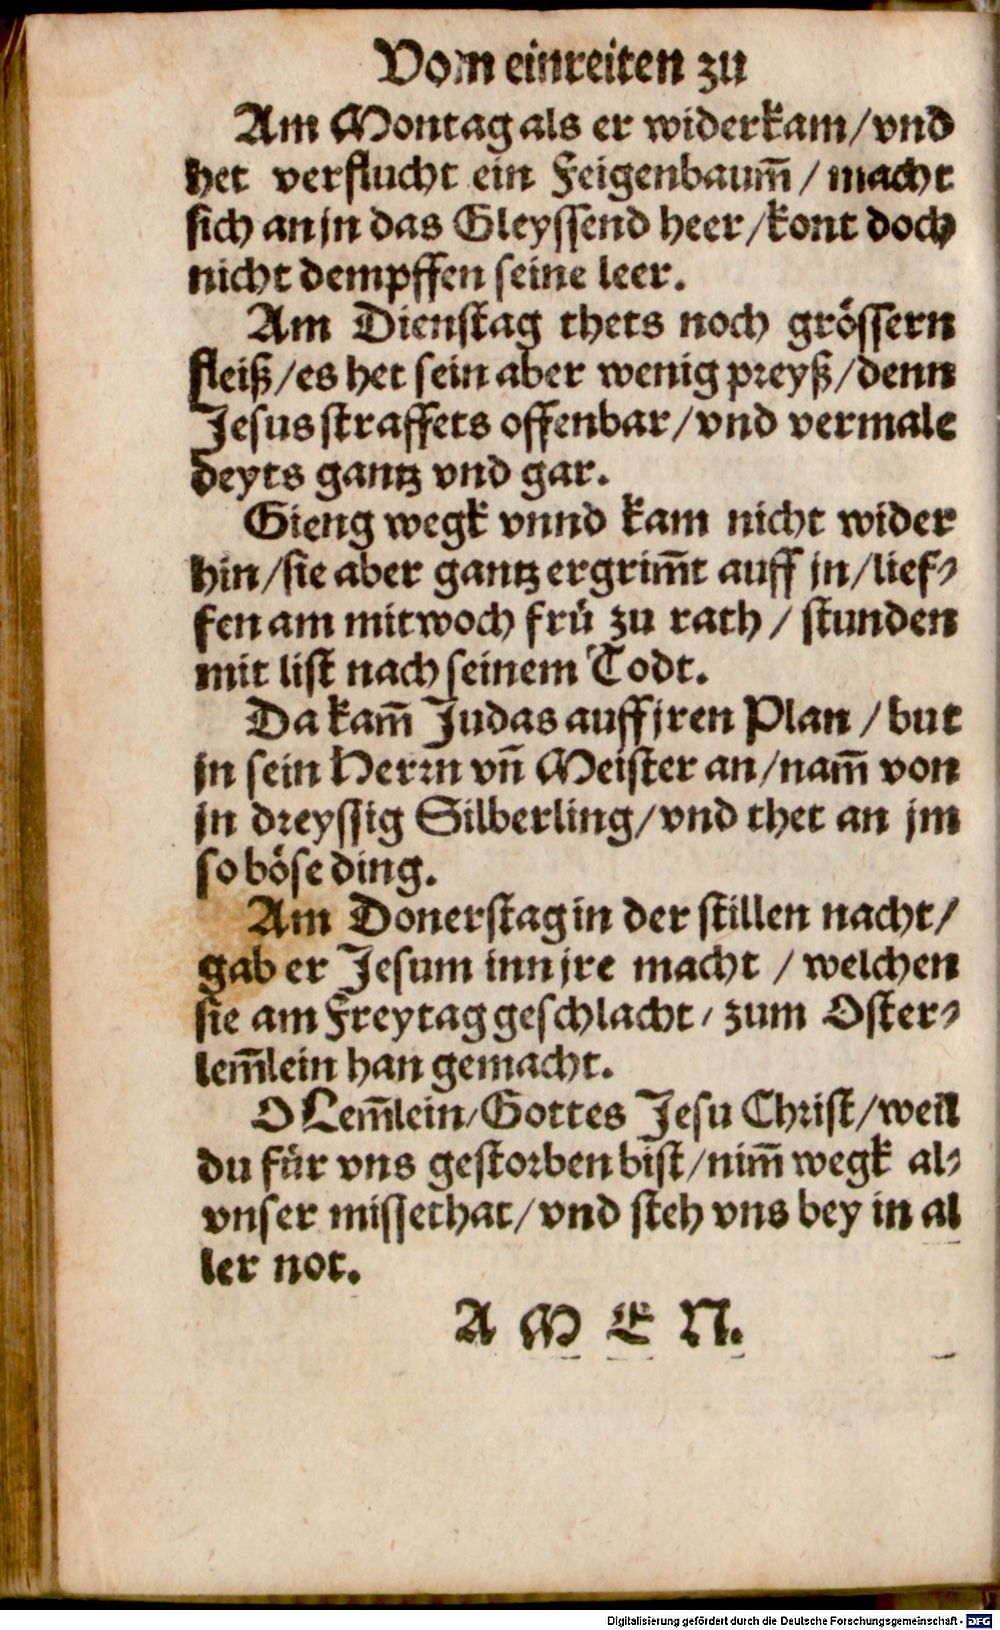 Vom einreiten zu
Am Montag als er widerkam/vnd
het verflucht ein Feigenbaum̃/ macht
sich an jn das Gleyssend heer/kont doch
nicht dempffen seine leer.
Am Dienstag thets noch grössern
fleiß/es het sein aber wenig preyß/denn
Jesus straffets offenbar/vnd vermale
deyts gantz vnd gar.
Gieng wegk vnnd kam nicht wider
hin/sie aber gantz ergrim̃t auff jn/lief-
fen am mitwoch frü zu rath/ stunden
mit list nach seinem Todt.
Da kam̃ Judas auff jren Plan/but
jn sein Herrn vñ Meister an/nam̃ von
jn dreyssig Silberling/vnd thet an jm
so böse ding.
Am Donerstag in der stillen nacht/
gab er Jesum inn jre macht/welchen
sie am Freytag geschlacht/ zum Oster-
lem̃lein han gemacht.
O Lem̃lein/Gottes Jesu Christ/weil
du für vns gestorben bist/nim̃ wegk al-
vnser missethat/vnd steh vns bey in al
ler not.
A M E N.
Digitalisierung gefördert durch die Deutsche Forschungsgemeinschaft - DFG